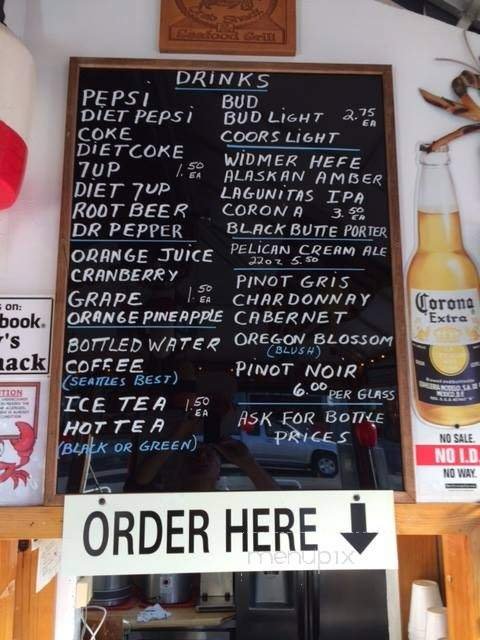 Crab Shack
Seafood Grill
DRINKS
PEPSI
DIET PEPSI
COKE
DIET COKE
7UP 1.50 EA
DIET 7UP
ROOT BEER
DR PEPPER
ORANGE JUICE
CRANBERRY
GRAPE 1.50 EA
ORANGE PINEAPPLE
BOTTLED WATER
COFFEE
(SEATTLES BEST)
ICE TEA 1.50 EA
HOT TEA
(BLACK OR GREEN)
BUD
BUD LIGHT 2.75 EA
COORS LIGHT
WIDMER HEFE
ALASKAN AMBER
LAGUNITAS IPA
CORONA 3.50 EA
BLACK BUTTE PORTER
PELICAN CREAM ALE
22OZ 5.50
PINOT GRIS
CHARDONNAY
CABERNET
OREGON BLOSSOM
(BLUSH)
PINOT NOIR
6.00 PER GLASS
ASK FOR BOTTLE
PRICES
s on:
book.
r's
hack
Corona
Extra
NO SALE
NO I.D.
NO WAY.
ORDER HERE
menupix